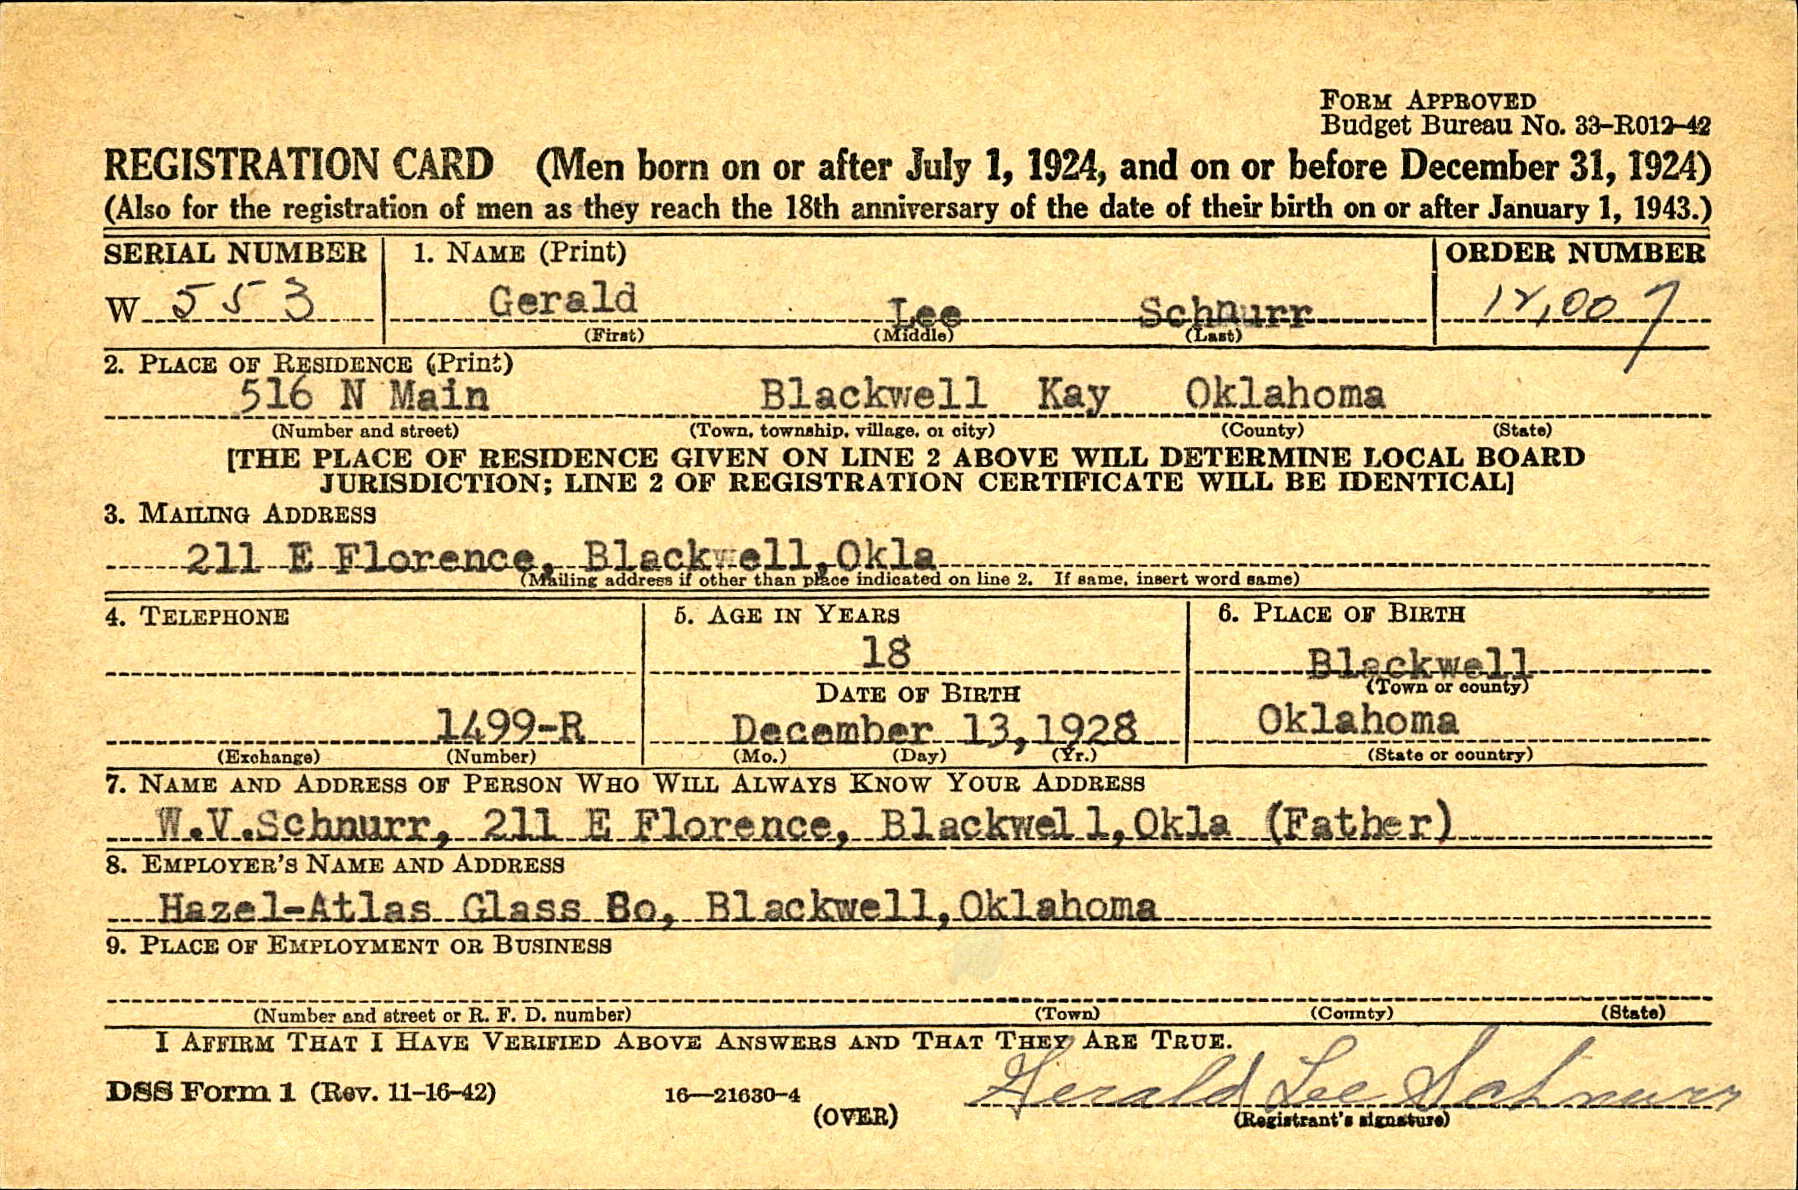 FORM APPROVED
Budget Bureau No. 33–R012–42
REGISTRATION CARD (Men born on or after July 1, 1924, and on or before December 31, 1924)
(Also for the registration of men as they reach the 18th anniversary of the date of their birth on or after January 1, 1943.)
SERIAL NUMBER 1. NAME (Print) ORDER NUMBER
W 553 Gerald Lee Schnurr 12,007
(First) (Middle) (Last)
2. PLACE OF RESIDENCE (Print)
516 N Main Blackwell Kay Oklahoma
(Number and street) (Town, township, village, or city) (County) (State)
[THE PLACE OF RESIDENCE GIVEN ON LINE 2 ABOVE WILL DETERMINE LOCAL BOARD
JURISDICTION; LINE 2 OF REGISTRATION CERTIFICATE WILL BE IDENTICAL]
3. MAILING ADDRESS
211 E Florence, Blackwell,Okla
(Mailing address if other than place indicated on line 2. If same, insert word same)
4. TELEPHONE 5. AGE IN YEARS 6. PLACE OF BIRTH
18 Blackwell
DATE OF BIRTH (Town or county)
1499-R December 13,1928 Oklahoma
(Exchange) (Number) (Mo.) (Day) (Yr.) (State or country)
7. NAME AND ADDRESS OF PERSON WHO WILL ALWAYS KNOW YOUR ADDRESS
W.V.Schnurr, 211 E Florence, Blackwell,Okla (Father)
8. EMPLOYER'S NAME AND ADDRESS
Hazel-Atlas Glass Bo, Blackwell,Oklahoma
9. PLACE OF EMPLOYMENT OR BUSINESS
(Number and street or R. F. D. number) (Town) (County) (State)
I AFFIRM THAT I HAVE VERIFIED ABOVE ANSWERS AND THAT THEY ARE TRUE.
DSS Form 1 (Rev. 11–16–42) 16—21630–4 Gerald Lee Schnurr
(OVER) (Registrant's signature)